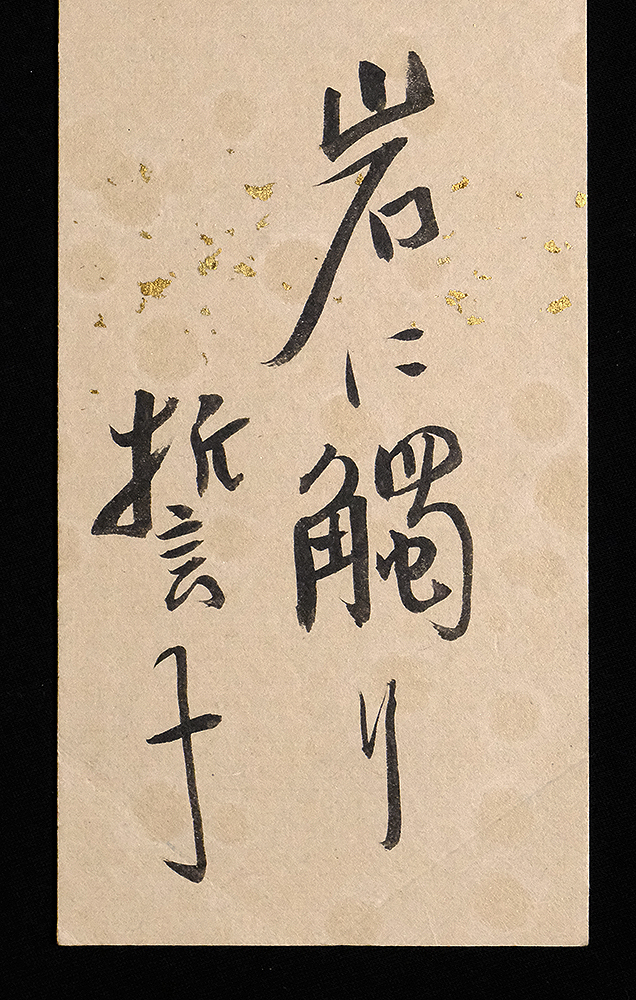 岩に觸り
誓子